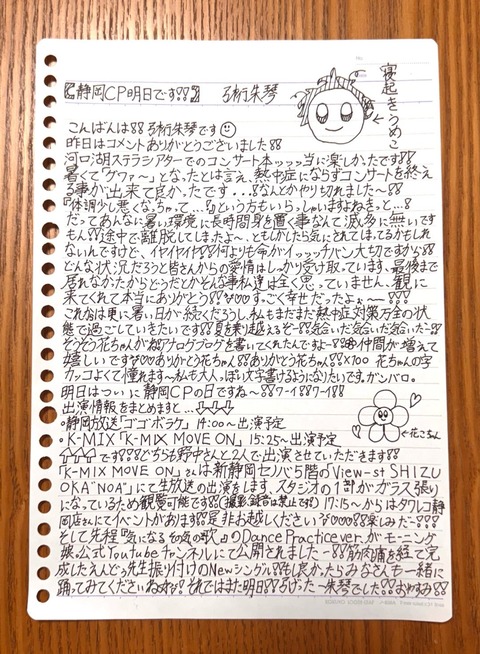 【静岡CP明日です!!】 弓桁朱琴
寝起きうめこ
こんばんは!!弓桁朱琴です
昨日はコメントありがとうございました!!
河口湖ステラシアターでのコンサート本ッッッ当に楽しかったです!!
暑くて「グワァ〜」となったとは言え、熱中症にならずコンサートを終え
る事が出来て良かったです…!なんとかやり切れました〜!!
『体調少し悪くなっちゃって…!』という方もいらっしゃいますよねきっと…!
だってあんなに暑い環境に長時間身を置く事なんて滅多に無いです
もん!!途中で離脱してしまったよ〜、ともしかしたら気にされてしまってるかもしれ
ないんですけど、イヤイヤイヤ!!何よりも命がイッッッチバン大切ですから!!
どんな状況だろうと皆さんからの愛情はしっかり受け取っています、最後まで
居れなかったからどうだとかそんな事私達は全く思っていません、観に
来てくれて本当にありがとう!!♡♡♡す。ごく幸せだったよぉ〜!!!
これからは更に暑い日が続くだろうし私もまだまだ熱中症対策万全の状
態で過ごしていきたいです!!夏を乗り越えるぞー!!気合いだ気合いだ気合いだー!!
そうそう花ちゃんがね!アナログブログを書いてくれたんですよ〜!!仲間が増えて
嬉しいです♡♡ありがとう花ちゃん!!ありがとう花ちゃん!!×100 花ちゃんの字
カッコよくて憧れます〜私も大人っぽい文字書けるようになりたいです。ガンバロ。
明日はついに静岡CPの日ですね〜!!ワーイ!!ワーイ!!
出演情報をまとめますと…↓↓↓
・静岡放送「ゴゴボラケ」 14:00〜出演予定
・K-MIX「K-MIX MOVE ON」 15:25〜出演予定
←花こちん
⇧⇧⇧です!!!どちらも野中さんと2人で出演させていただきます!!
「K-MIX MOVE ON」さんは新静岡セノバ5階の「View-st SHIZU
OKA"NOA"」にて生放送の出演をします、スタジオの1部がガラス張り
になっているため観覧可能です!(撮影、録音は禁止です!) 17:15〜からはタワレコ静
岡店さんにてイベントがあります!!是非お越しください♡♡♡!!楽しみだ〜!!!
そして先程『気になるその気の歌』のDance Practice ver.がモーニング
娘。公式Youtubeチャンネルにて公開されましたー!!筋肉痛を経て完
成したえんどぅ先生振り付けのNewシングル!!も良かったらみなさんも一緒に
踊ってみてくださいね!!それではまた明日!!弓げった一朱琴でした!!おやすみ!!